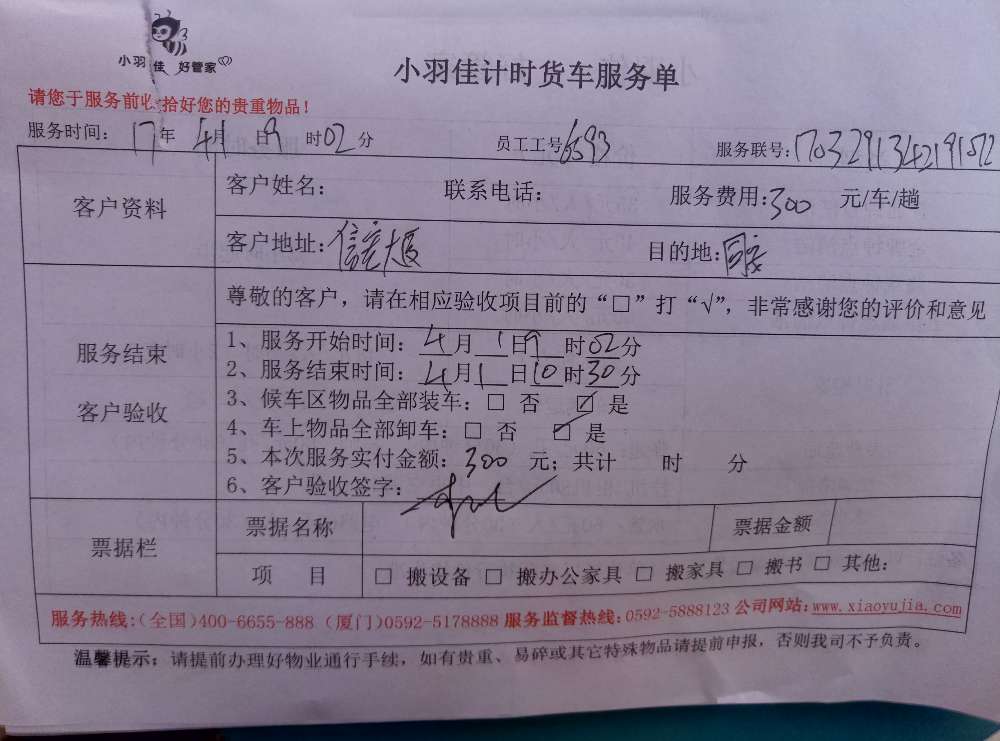 小羽佳 好管家
小羽佳计时货车服务单
请您于服务前收拾好您的贵重物品！
服务时间：17年 4月1日9时02分 员工工号6593 服务联号：
客户资料 客户姓名： 联系电话： 服务费用：300 元/车/趟
客户地址：信宏大厦 目的地：
尊敬的客户，请在相应验收项目前的“□”打“√”，非常感谢您的评价和意见
服务结束
客户验收
1、服务开始时间：4月1日9时02分
2、服务结束时间：4月1日10时30分
3、候车区物品全部装车：□ 否 ☑ 是
4、车上物品全部卸车：□ 否 ☑ 是
5、本次服务实付金额：300 元；共计 时 分
6、客户验收签字：
票据栏 票据名称 票据金额
项 目 □ 搬设备 □ 搬办公家具 □ 搬家具 □ 搬书 □ 其他：
服务热线：（全国）400-6655-888（厦门）0592-5178888 服务监督热线：0592-5888123 公司网站：www.xiaoyujia.com
温馨提示：请提前办理好物业通行手续，如有贵重、易碎或其它特殊物品请提前申报，否则我司不予负责。